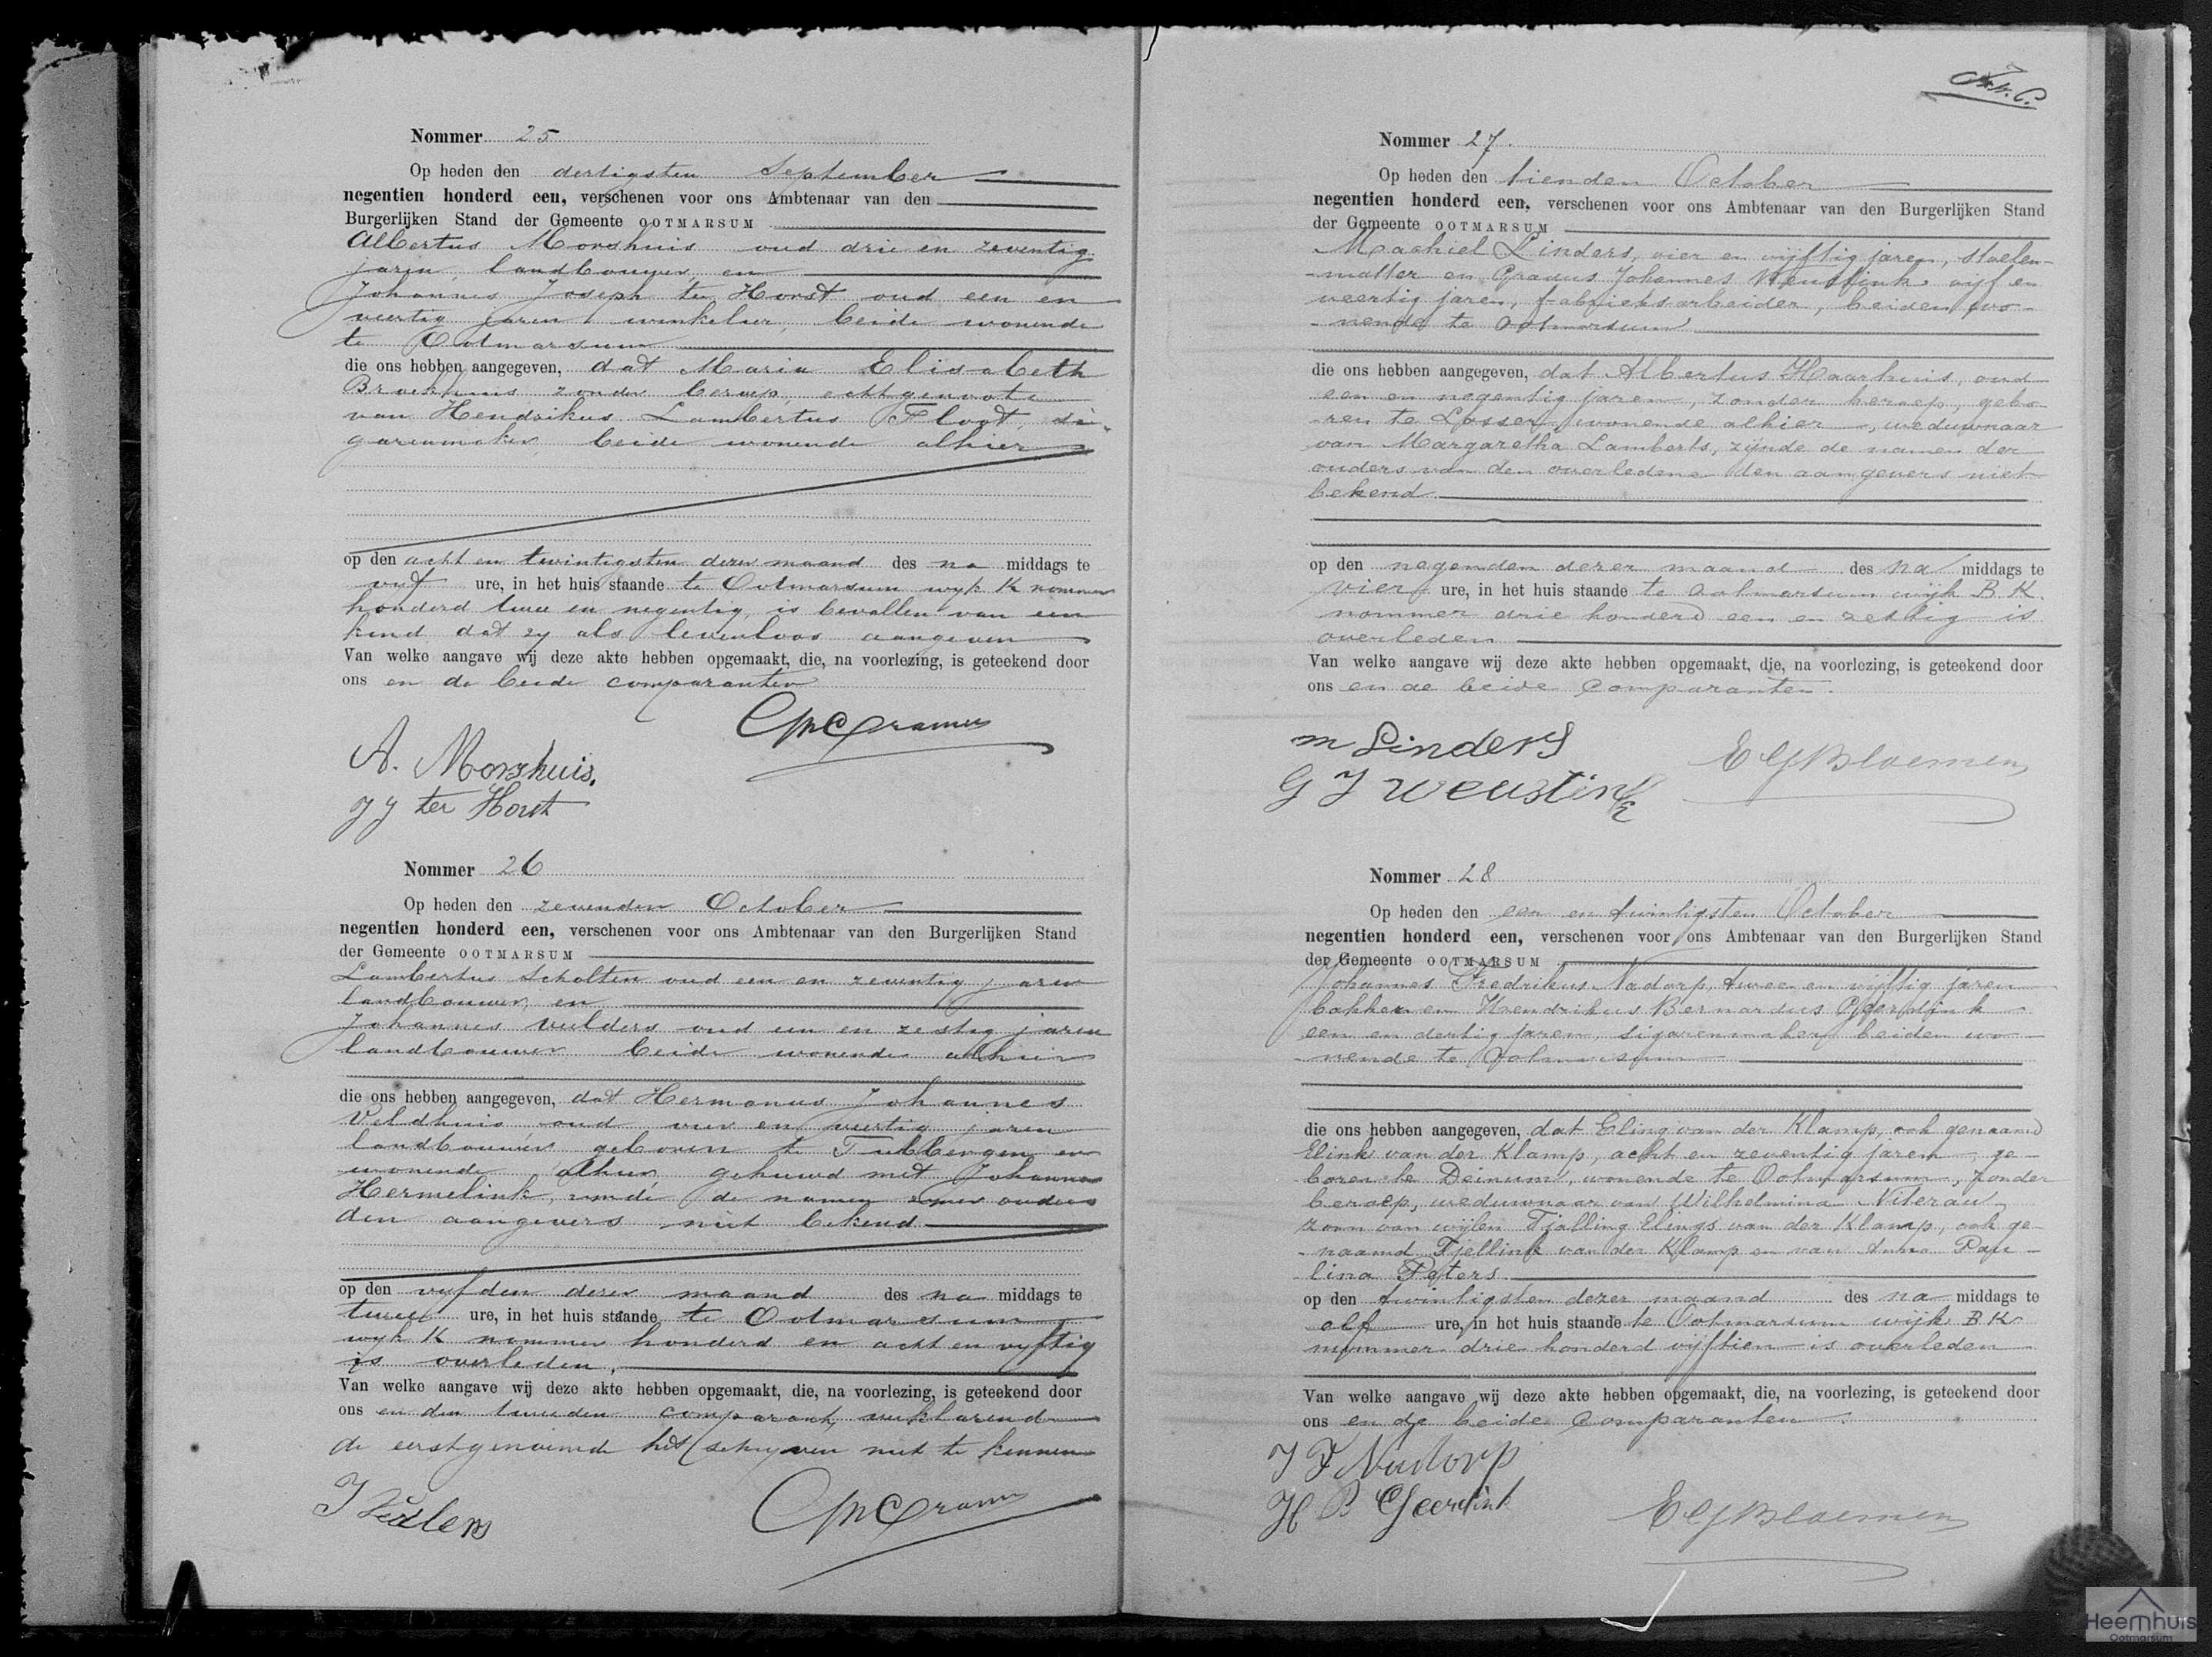 Nommer 25
Op heden den dertigsten September
negentien honderd een, verschenen voor ons Ambtenaar van den
Burgerlijken Stand der Gemeente OOTMARSUM
Albertus Morshuis oud drie en zeventig
jaren, landbouwer, en
Johannes Joseph ter Horst oud een en
veertig jaren, winkelier, beide wonende
te Ootmarsum
die ons hebben aangegeven, dat Maria Elisabeth
Broekhuis zonder beroep, echtgenoote
van Hendrikus Lambertus Floot, si-
garenmaker, beide wonende alhier
op den acht en twintigsten dezer maand des na middags te
vijf ure, in het huis staande te Ootmarsum wyk K nommer
honderd twee en negentig, is bevallen van een
kind dat zy als levenloos aangeven
Van welke aangave wij deze akte hebben opgemaakt, die, na voorlezing, is geteekend door
ons en de beide comparanten
A. Morshuis.
J J ter Horst
Nommer 26
Op heden den zevenden October
negentien honderd een, verschenen voor ons Ambtenaar van den Burgerlijken Stand
der Gemeente OOTMARSUM
Lambertus Scholten oud een en zeventig jaren
landbouwer, en
Johannes Veelders oud een en zestig jaren
landbouwer beide wonende alhier
die ons hebben aangegeven, dat Hermanus Johannes
Veldhuis oud vier en veertig jaren
landbouwer geboren te Tubbergen en
wonende alhier gehuwd met Johanna
Hermelink, zynde de namen zyner ouders
den aangevers niet bekend
op den vyfden dezer maand des na middags te
twee ure, in het huis staande te Ootmarsum
wyk K nommer honderd en acht en vyftig
is overleden,
Van welke aangave wij deze akte hebben opgemaakt, die, na voorlezing, is geteekend door
ons en den tweeden comparant, verklarende
de eerstgenoemde het schryven niet te kennen
Nommer 27.
Op heden den tienden October
negentien honderd een, verschenen voor ons Ambtenaar van den Burgerlijken Stand
der Gemeente OOTMARSUM
Machiel Linders, vier en vijftig jaren, stoelen-
matter en Gradus Johannes Weustink vijf en
veertig jaren, fabrieksarbeider, beiden wo-
nende te Ootmarsum
die ons hebben aangegeven, dat Albertus Haarhuis, oud
een en negentig jaren, zonder beroep, gebo-
ren te Losser, wonende alhier, weduwnaar
van Margaretha Lamberts, zijnde de namen der
ouders van den overledene den aangevers niet
bekend
op den negenden dezer maand des na middags te
vier ure, in het huis staande te Ootmarsum wijk B.K.
nommer drie honderd een en zestig is
overleden
Van welke aangave wij deze akte hebben opgemaakt, die, na voorlezing, is geteekend door
ons en de beide Comparanten.
m Linders
E G Bloemen
G J Weustink
Nommer 28
Op heden den een en twintigsten October
negentien honderd een, verschenen voor ons Ambtenaar van den Burgerlijken Stand
der Gemeente OOTMARSUM
Johannes Fredrikus Nadorp, twee en vijftig jaren
bakker en Hendrikus Bernardus Geerdink
een en dertig jaren, sigarenmaker beiden wo-
nende te Ootmarsum
die ons hebben aangegeven, dat Eling van der Klamp, ook genaamd
Elink van der Klamp, acht en zeventig jaren, ge-
boren te Deinum, wonende te Ootmarsum, zonder
beroep, weduwnaar van Wilhelmina Viterau
zoon van wijlen Tjalling Elings van der Klamp, ook ge-
naamd Tjellink van der Klamp en van Anna Pau-
lina Peters
op den twintigsten dezer maand des na middags te
elf ure, in het huis staande te Ootmarsum wijk B K
nummer drie honderd vijftien is overleden
Van welke aangave wij deze akte hebben opgemaakt, die, na voorlezing, is geteekend door
ons en de beide Comparanten.
J F Nadorp
H B Geerdink
E G Bloemen
Heemhuis
Ootmarsum